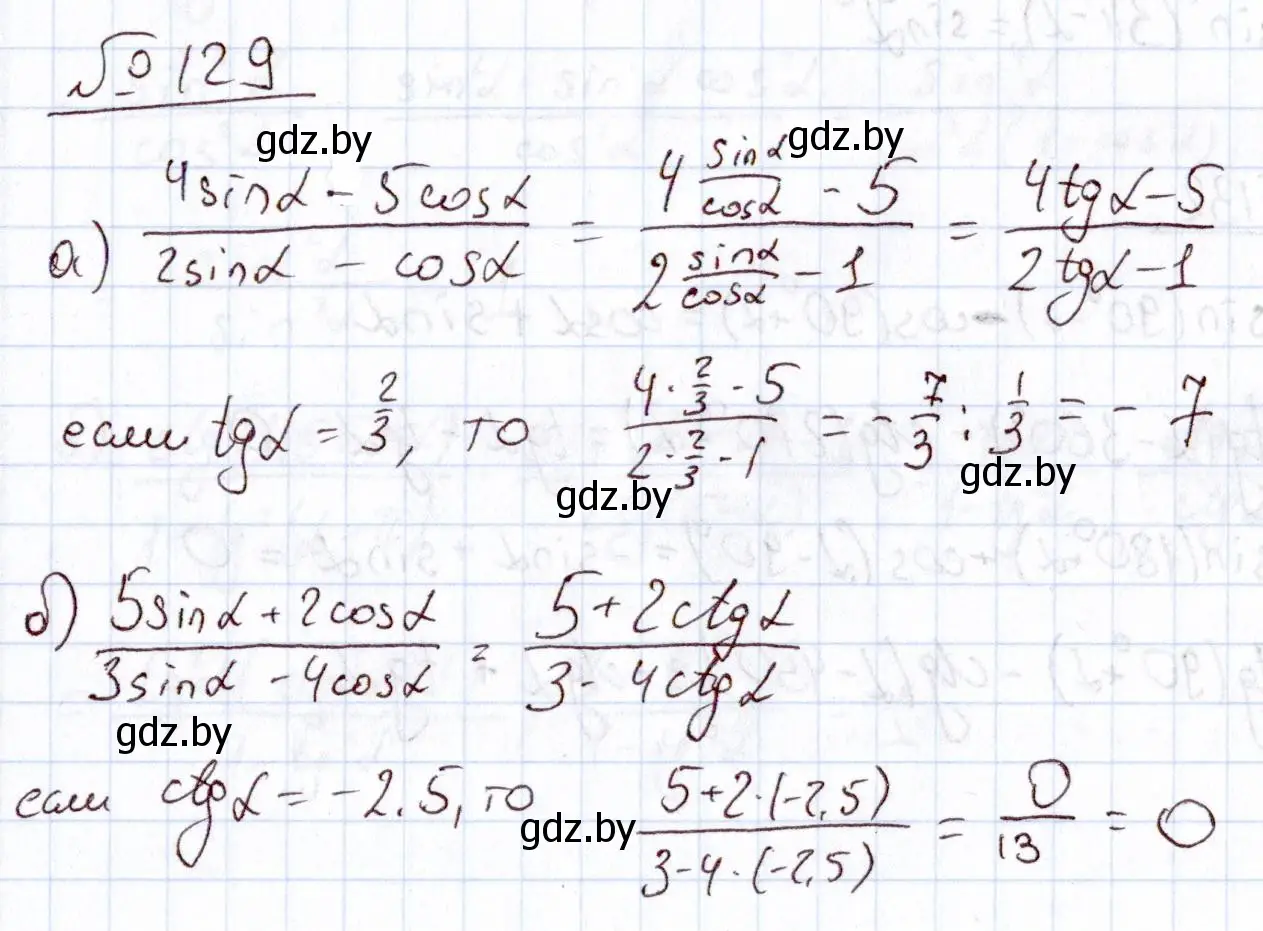 № 129
gdz.by
а) (4sinα − 5cosα)/(2sinα − cosα) = (4 sinα/cosα − 5)/(2 sinα/cosα − 1) = (4tgα − 5)/(2tgα − 1)
gdz.by
если tgα = 2/3, то (4 · 2/3 − 5)/(2 · 2/3 − 1) = − 7/3 : 1/3 = − 7
gdz.by
gdz.by
б) (5sinα + 2cosα)/(3sinα − 4cosα) = (5 + 2ctgα)/(3 − 4ctgα)
gdz.by
если ctgα = −2.5, то (5+2·(−2,5))/(3−4·(−2,5)) = 0/13 = 0
gdz.by